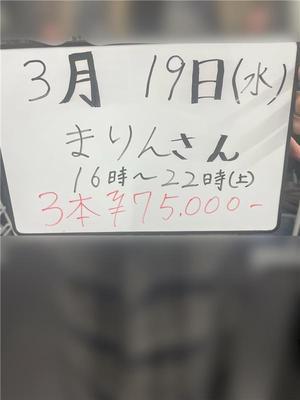 3月 19日(水)
まりんさん
16時～22時(土)
3本 ¥75.000-